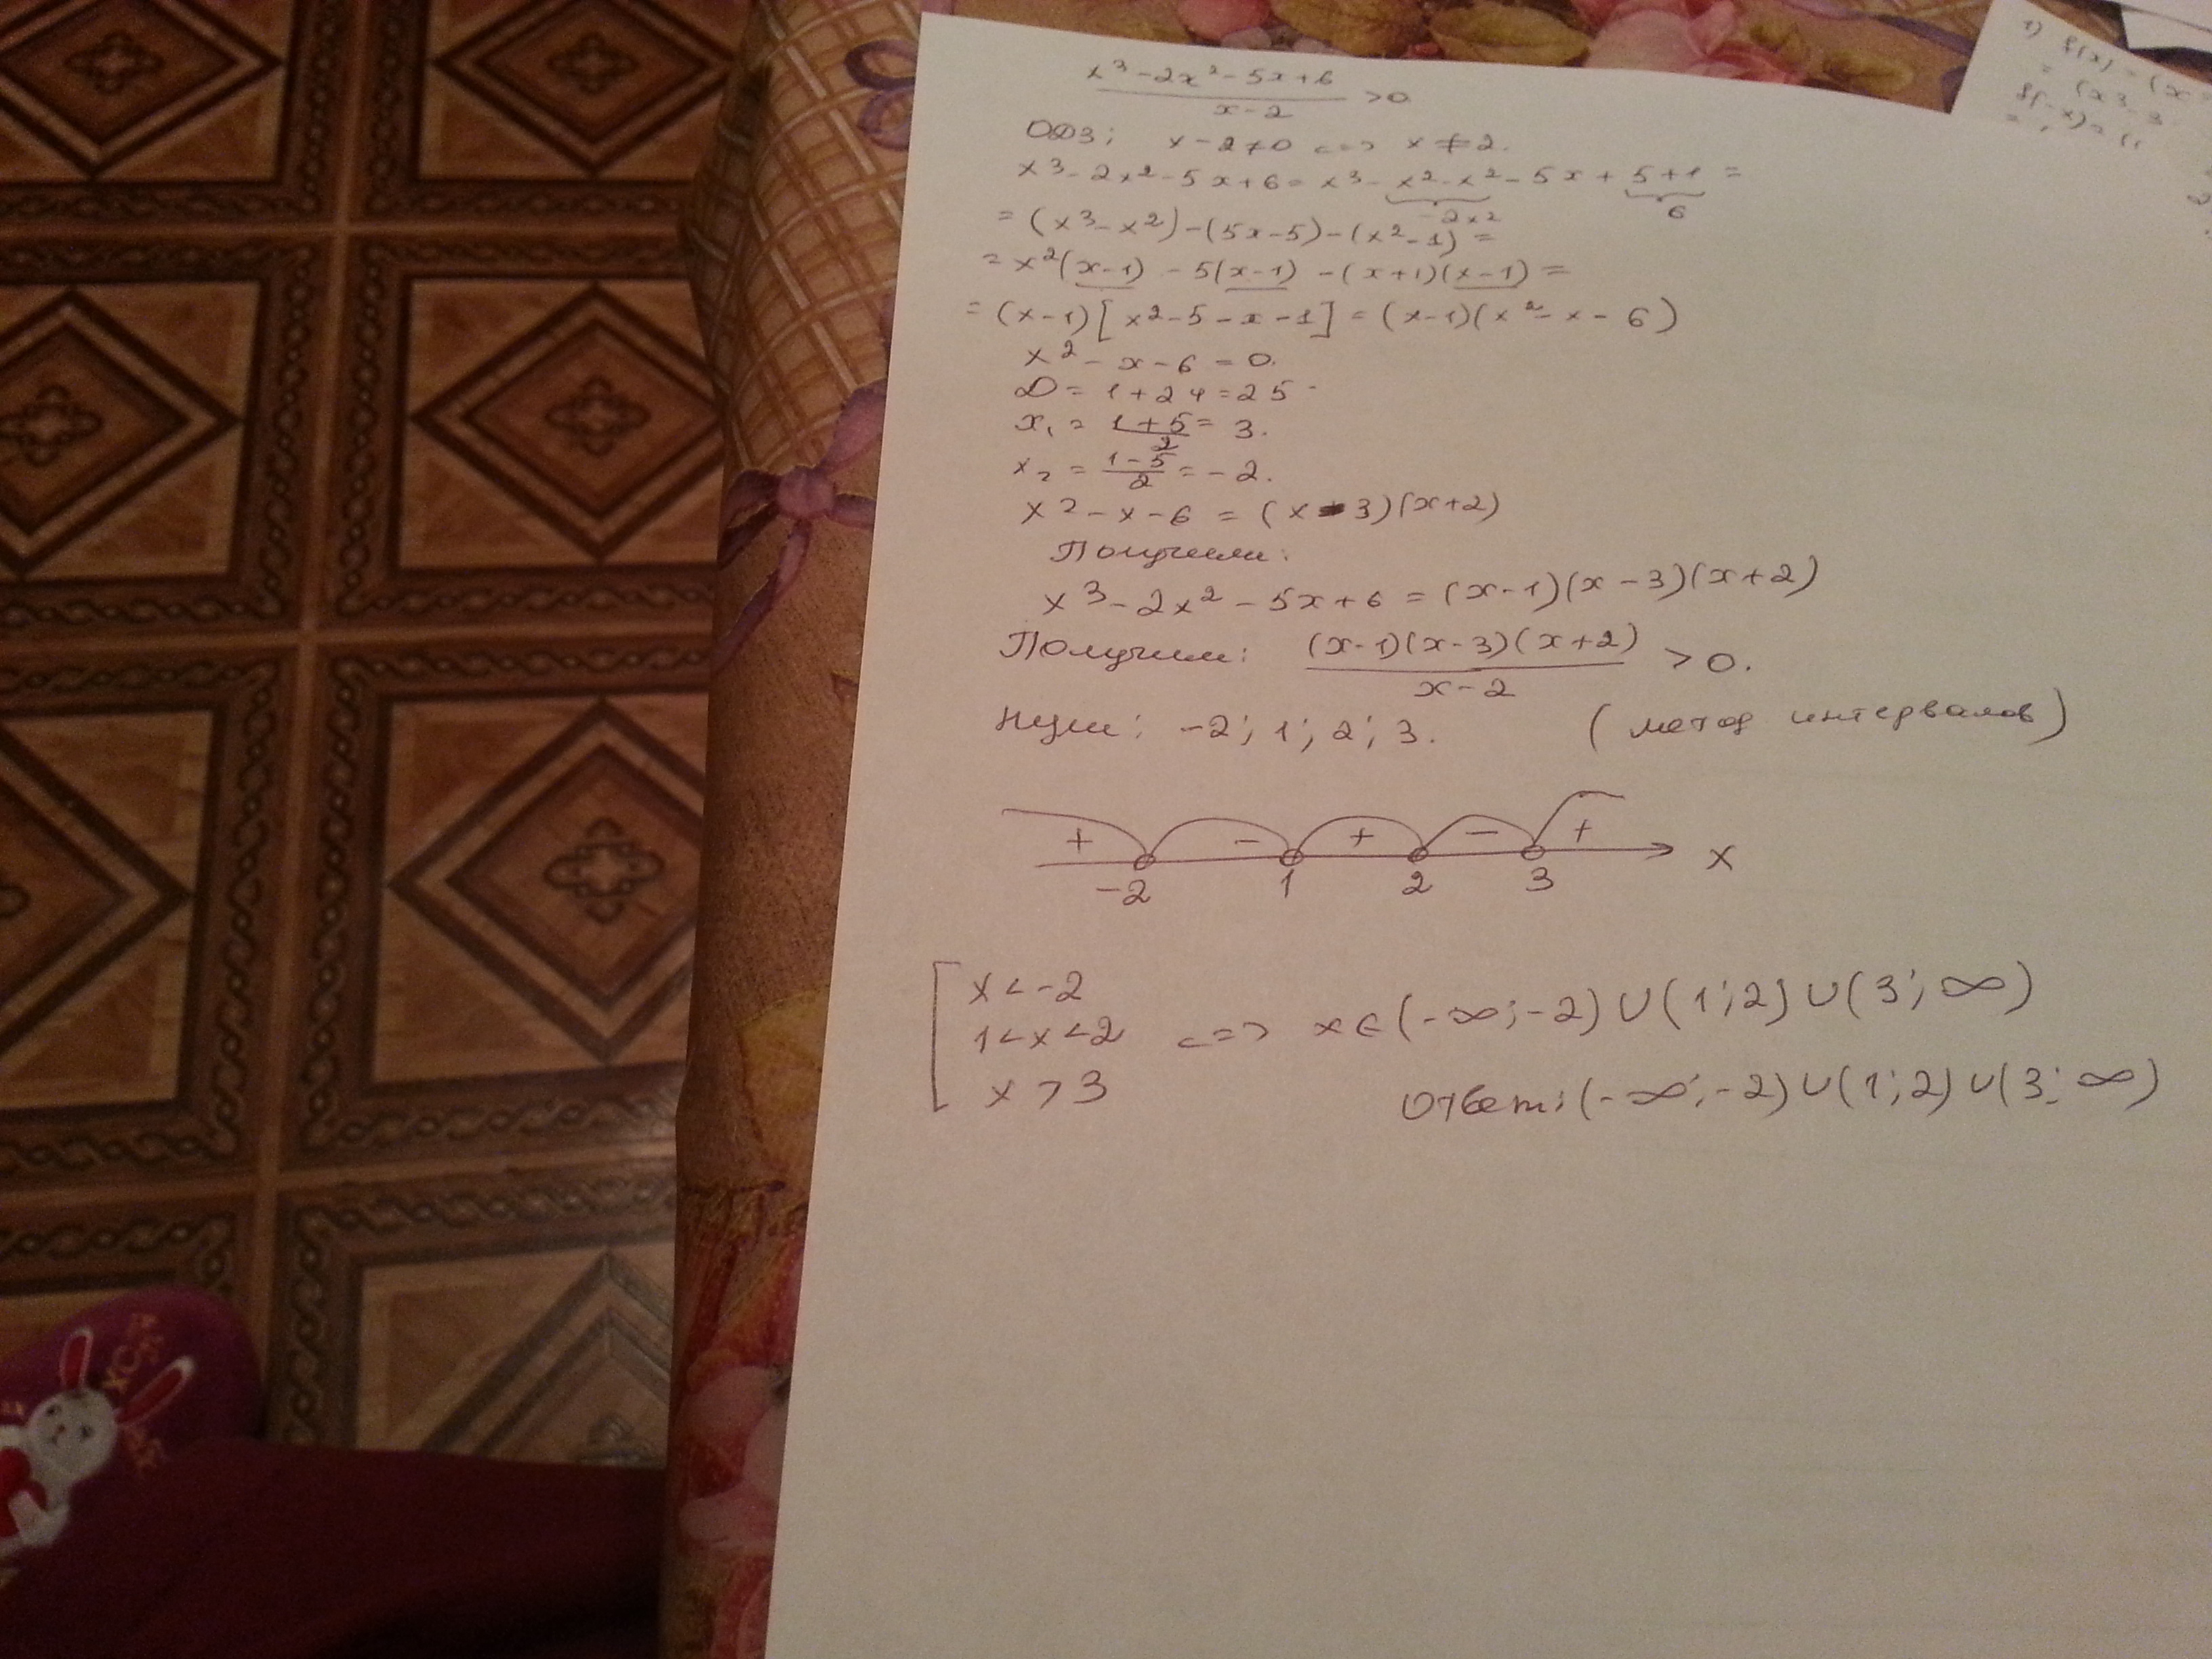 x³-2x²-5x+6
x-2 >0
ОДЗ: x-2≠0 <=> x≠2.
x³-2x²-5x+6=x³-x²-x²-5x+5+1=
-2x² 6
=(x³-x²)-(5x-5)-(x²-1)=
=x²(x-1)-5(x-1)-(x+1)(x-1)=
=(x-1)[x²-5-x-1]=(x-1)(x²-x-6)
x²-x-6=0.
D=1+24=25
x₁=(1+5)/2=3.
x₂=(1-5)/2=-2.
x²-x-6=(x-3)(x+2)
Получили:
x³-2x²-5x+6=(x-1)(x-3)(x+2)
Получим: (x-1)(x-3)(x+2)
x-2 >0.
Нули: -2; 1; 2; 3. (метод интервалов)
+ - + - +
-2 1 2 3 x
x<-2
1<x<2 <=> x∈(-∞;-2)∪(1;2)∪(3;∞)
x>3
Ответ: (-∞;-2)∪(1;2)∪(3;∞)
1) f(x)=(x
=(x3-3
f(-x)=(